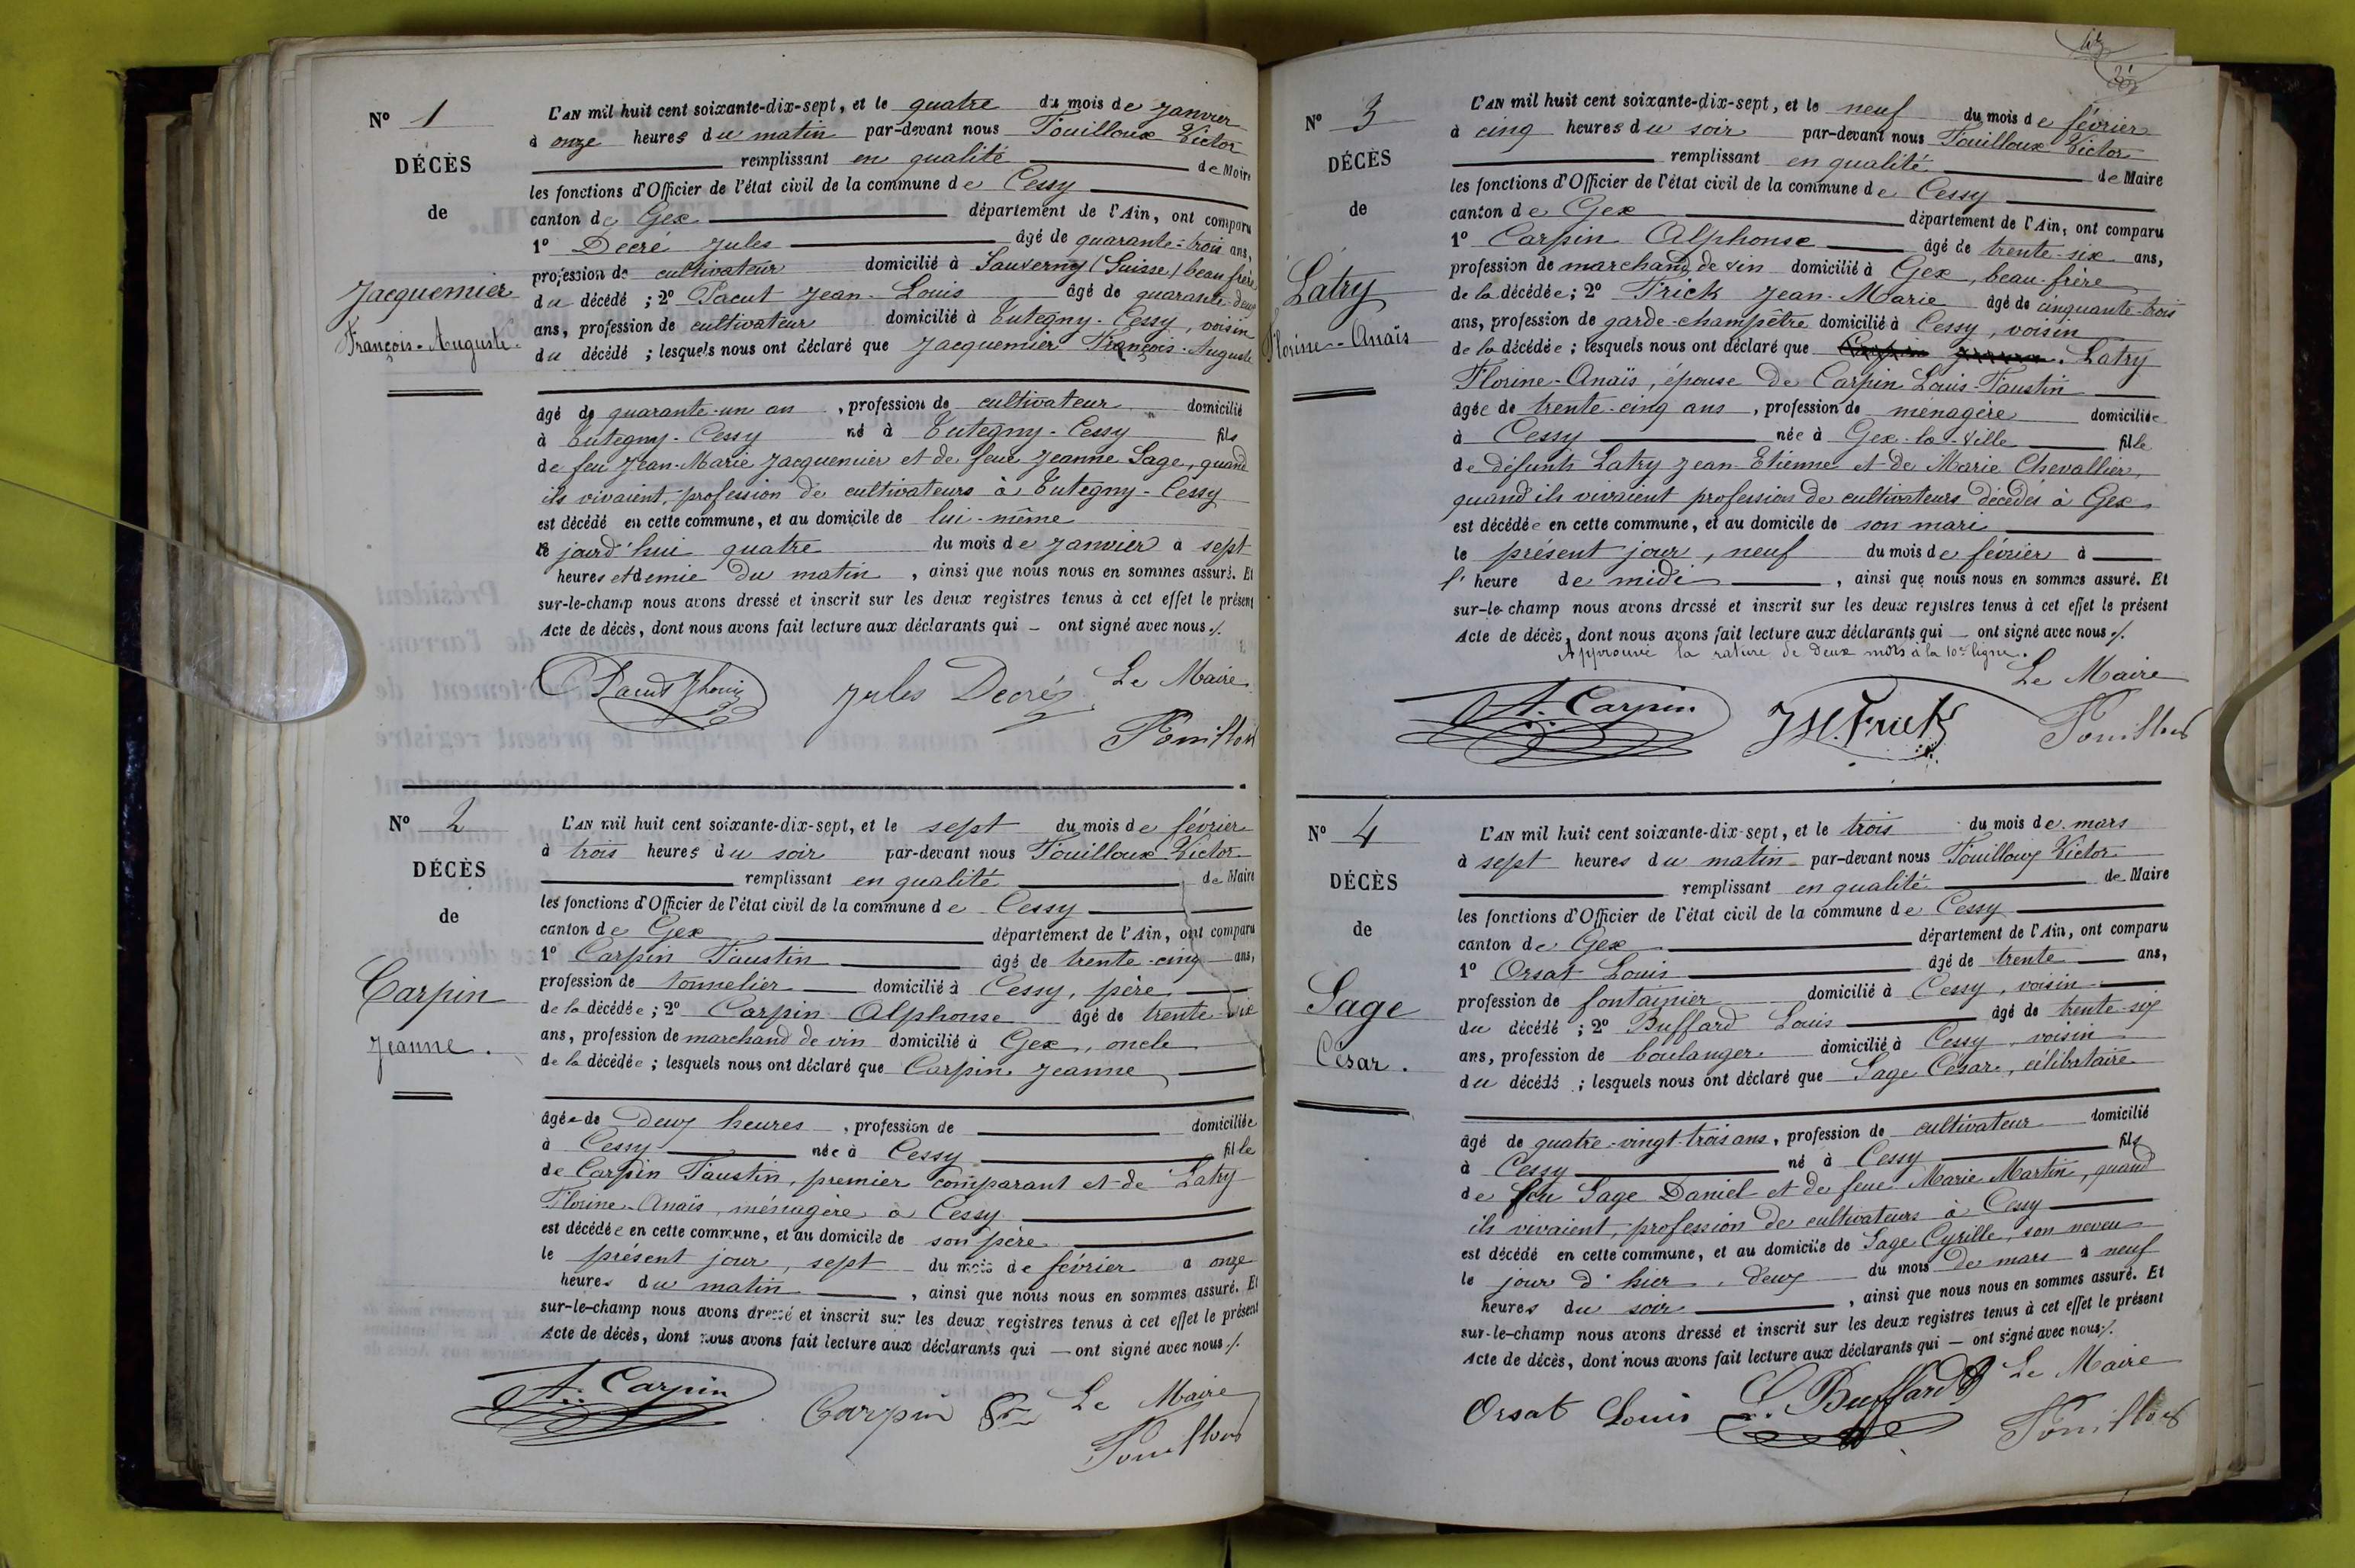 Nº 1
DÉCÈS
de
Jacquemier
François-Auguste.
L'AN mil huit cent soixante-dix-sept, et le quatre du mois de Janvier
à onze heures du matin par-devant nous Fouilloux Victor
remplissant en qualité de Maire
les fonctions d'Officier de l'état civil de la commune de Cessy
canton de Gex département de l'Ain, ont comparu
1º Decré Jules âgé de quarante-trois ans,
profession de cultivateur domicilié à Sauverny (Suisse) beau frère
du décédé ; 2º Pacut Jean-Louis âgé de quarante-deux
ans, profession de cultivateur domicilié à Tutegny-Cessy, voisin
du décédé ; lesquels nous ont déclaré que Jacquemier François-Auguste
âgé de quarante-un an, profession de cultivateur domicilié
à Tutegny-Cessy né à Tutegny-Cessy fils
de feu Jean-Marie Jacquemier et de feue Jeanne Sage, quand
ils vivaient, profession de cultivateurs à Tutegny-Cessy
est décédé en cette commune, et au domicile de lui-même
jourd'hui quatre du mois de Janvier à sept
heures et demie du matin, ainsi que nous nous en sommes assuré. Et
sur-le-champ nous avons dressé et inscrit sur les deux registres tenus à cet effet le présent
Acte de décès, dont nous avons fait lecture aux déclarants qui — ont signé avec nous ./.
Pacut JLouis Jules Decré Le Maire
Fouilloux
Nº 2
DÉCÈS
de
Carpin
Jeanne.
L'AN mil huit cent soixante-dix-sept, et le sept du mois de février
à trois heures du soir par-devant nous Fouilloux Victor
remplissant en qualité de Maire
les fonctions d'Officier de l'état civil de la commune de Cessy
canton de Gex département de l'Ain, ont comparu
1º Carpin Faustin âgé de trente-cinq ans,
profession de tonnelier domicilié à Cessy, père
de la décédée ; 2º Carpin Alphonse âgé de trente-six
ans, profession de marchand de vin domicilié à Gex, oncle
de la décédée ; lesquels nous ont déclaré que Carpin Jeanne
âgée de Deux heures, profession de domiciliée
à Cessy née à Cessy fille
de Carpin Faustin, premier comparant et de Latry
Florine-Anaïs, ménagère à Cessy
est décédée en cette commune, et au domicile de son père
le présent jour, sept du mois de février à onze
heures du matin, ainsi que nous nous en sommes assuré. Et
sur-le-champ nous avons dressé et inscrit sur les deux registres tenus à cet effet le présent
Acte de décès, dont nous avons fait lecture aux déclarants qui — ont signé avec nous ./.
A. Carpin Carpin Le Maire
Fouilloux
Nº 3
DÉCÈS
de
Latry
Florine-Anaïs
L'AN mil huit cent soixante-dix-sept, et le neuf du mois de février
à cinq heures du soir par-devant nous Fouilloux Victor
remplissant en qualité de Maire
les fonctions d'Officier de l'état civil de la commune de Cessy
canton de Gex département de l'Ain, ont comparu
1º Carpin Alphonse âgé de trente-six ans,
profession de marchand de vin domicilié à Gex, beau-frère
de la décédée ; 2º Frick Jean-Marie âgé de cinquante-trois
ans, profession de garde-champêtre domicilié à Cessy, voisin
de la décédée ; lesquels nous ont déclaré que Latry
Florine-Anaïs, épouse de Carpin Louis-Faustin
âgée de trente-cinq ans, profession de ménagère domiciliée
à Cessy née à Gex-la-Ville fille
de défunts Latry Jean-Etienne et de Marie Chevallier,
quand ils vivaient profession de cultivateurs décédés à Gex
est décédée en cette commune, et au domicile de son mari
le présent jour, neuf du mois de février à
l'heure de midi, ainsi que nous nous en sommes assuré. Et
sur-le-champ nous avons dressé et inscrit sur les deux registres tenus à cet effet le présent
Acte de décès, dont nous avons fait lecture aux déclarants qui — ont signé avec nous ./.
Approuvé la rature de deux mots à la 10e ligne.
Le Maire
A. Carpin JM. Frick Fouilloux
Nº 4
DÉCÈS
de
Sage
César.
L'AN mil huit cent soixante-dix-sept, et le trois du mois de mars
à sept heures du matin par-devant nous Fouilloux Victor
remplissant en qualité de Maire
les fonctions d'Officier de l'état civil de la commune de Cessy
canton de Gex département de l'Ain, ont comparu
1º Orsat Louis âgé de trente ans,
profession de fontainier domicilié à Cessy, voisin
du décédé ; 2º Buffard Louis âgé de trente-six
ans, profession de boulanger domicilié à Cessy, voisin
du décédé ; lesquels nous ont déclaré que Sage César, célibataire
âgé de quatre-vingt-trois ans, profession de cultivateur domicilié
à Cessy né à Cessy fils
de feu Sage Daniel et de feue Marie Martin, quand
ils vivaient, profession de cultivateurs à Cessy
est décédé en cette commune, et au domicile de Sage Cyrille, son neveu
le jour d'hier, deux du mois de mars à neuf
heures du soir, ainsi que nous nous en sommes assuré. Et
sur-le-champ nous avons dressé et inscrit sur les deux registres tenus à cet effet le présent
Acte de décès, dont nous avons fait lecture aux déclarants qui — ont signé avec nous ./.
Orsat Louis L. Buffard Le Maire
Fouilloux